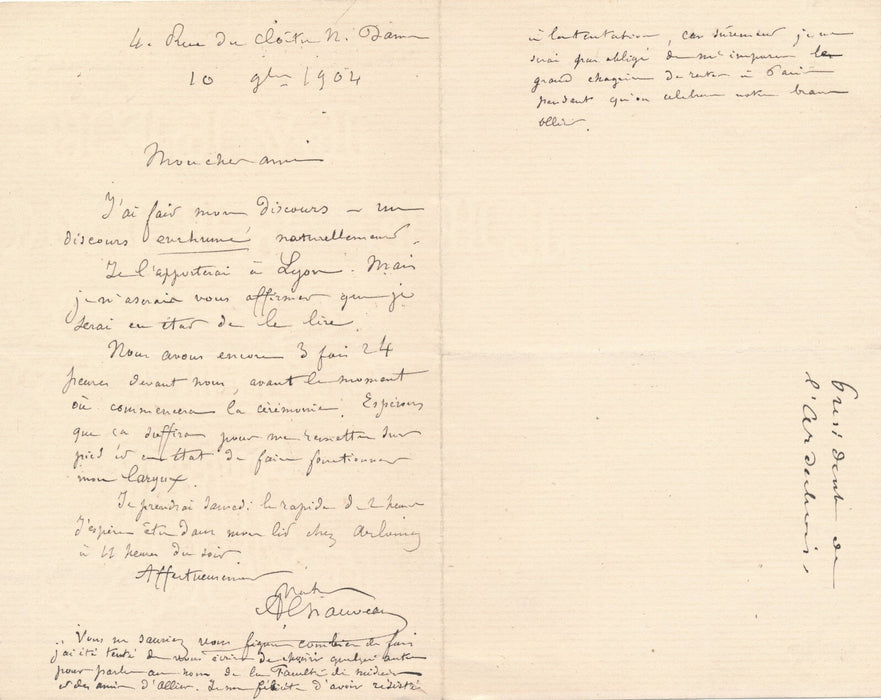 4. Rue du Cloître N. Dame
10 9bre 1904
Mon cher ami
J'ai fait mon discours – un
discours enrhumé naturellement.
Je l'apporterai à Lyon. Mais
je n'oserais vous affirmer que je
serai en état de le lire.
Nous avons encore 3 fois 24
heures devant nous, avant le moment
où commencera la cérémonie. Espérons
que ça suffira pour me remettre sur
pied et en état de faire fonctionner
mon larynx.
Je prendrai samedi le rapide de 2 heures
J'espère être dans mon lit chez Arloing
à 11 heures du soir
Affectueusement
Votre
A Chauveau
Vous ne sauriez vous figurer combien de fois
j'ai été tenté de vous écrire de choisir quelqu'autre
pour parler au nom de la Faculté de médecine
et des amis d'Ollier. Je me félicite d'avoir résisté
à la tentation, car sûrement je ne
serai pas obligé de m'imposer le
grand chagrin de rester à Paris
pendant qu'on célébrera notre brave
Ollier.
président de
l'Ardéchois,